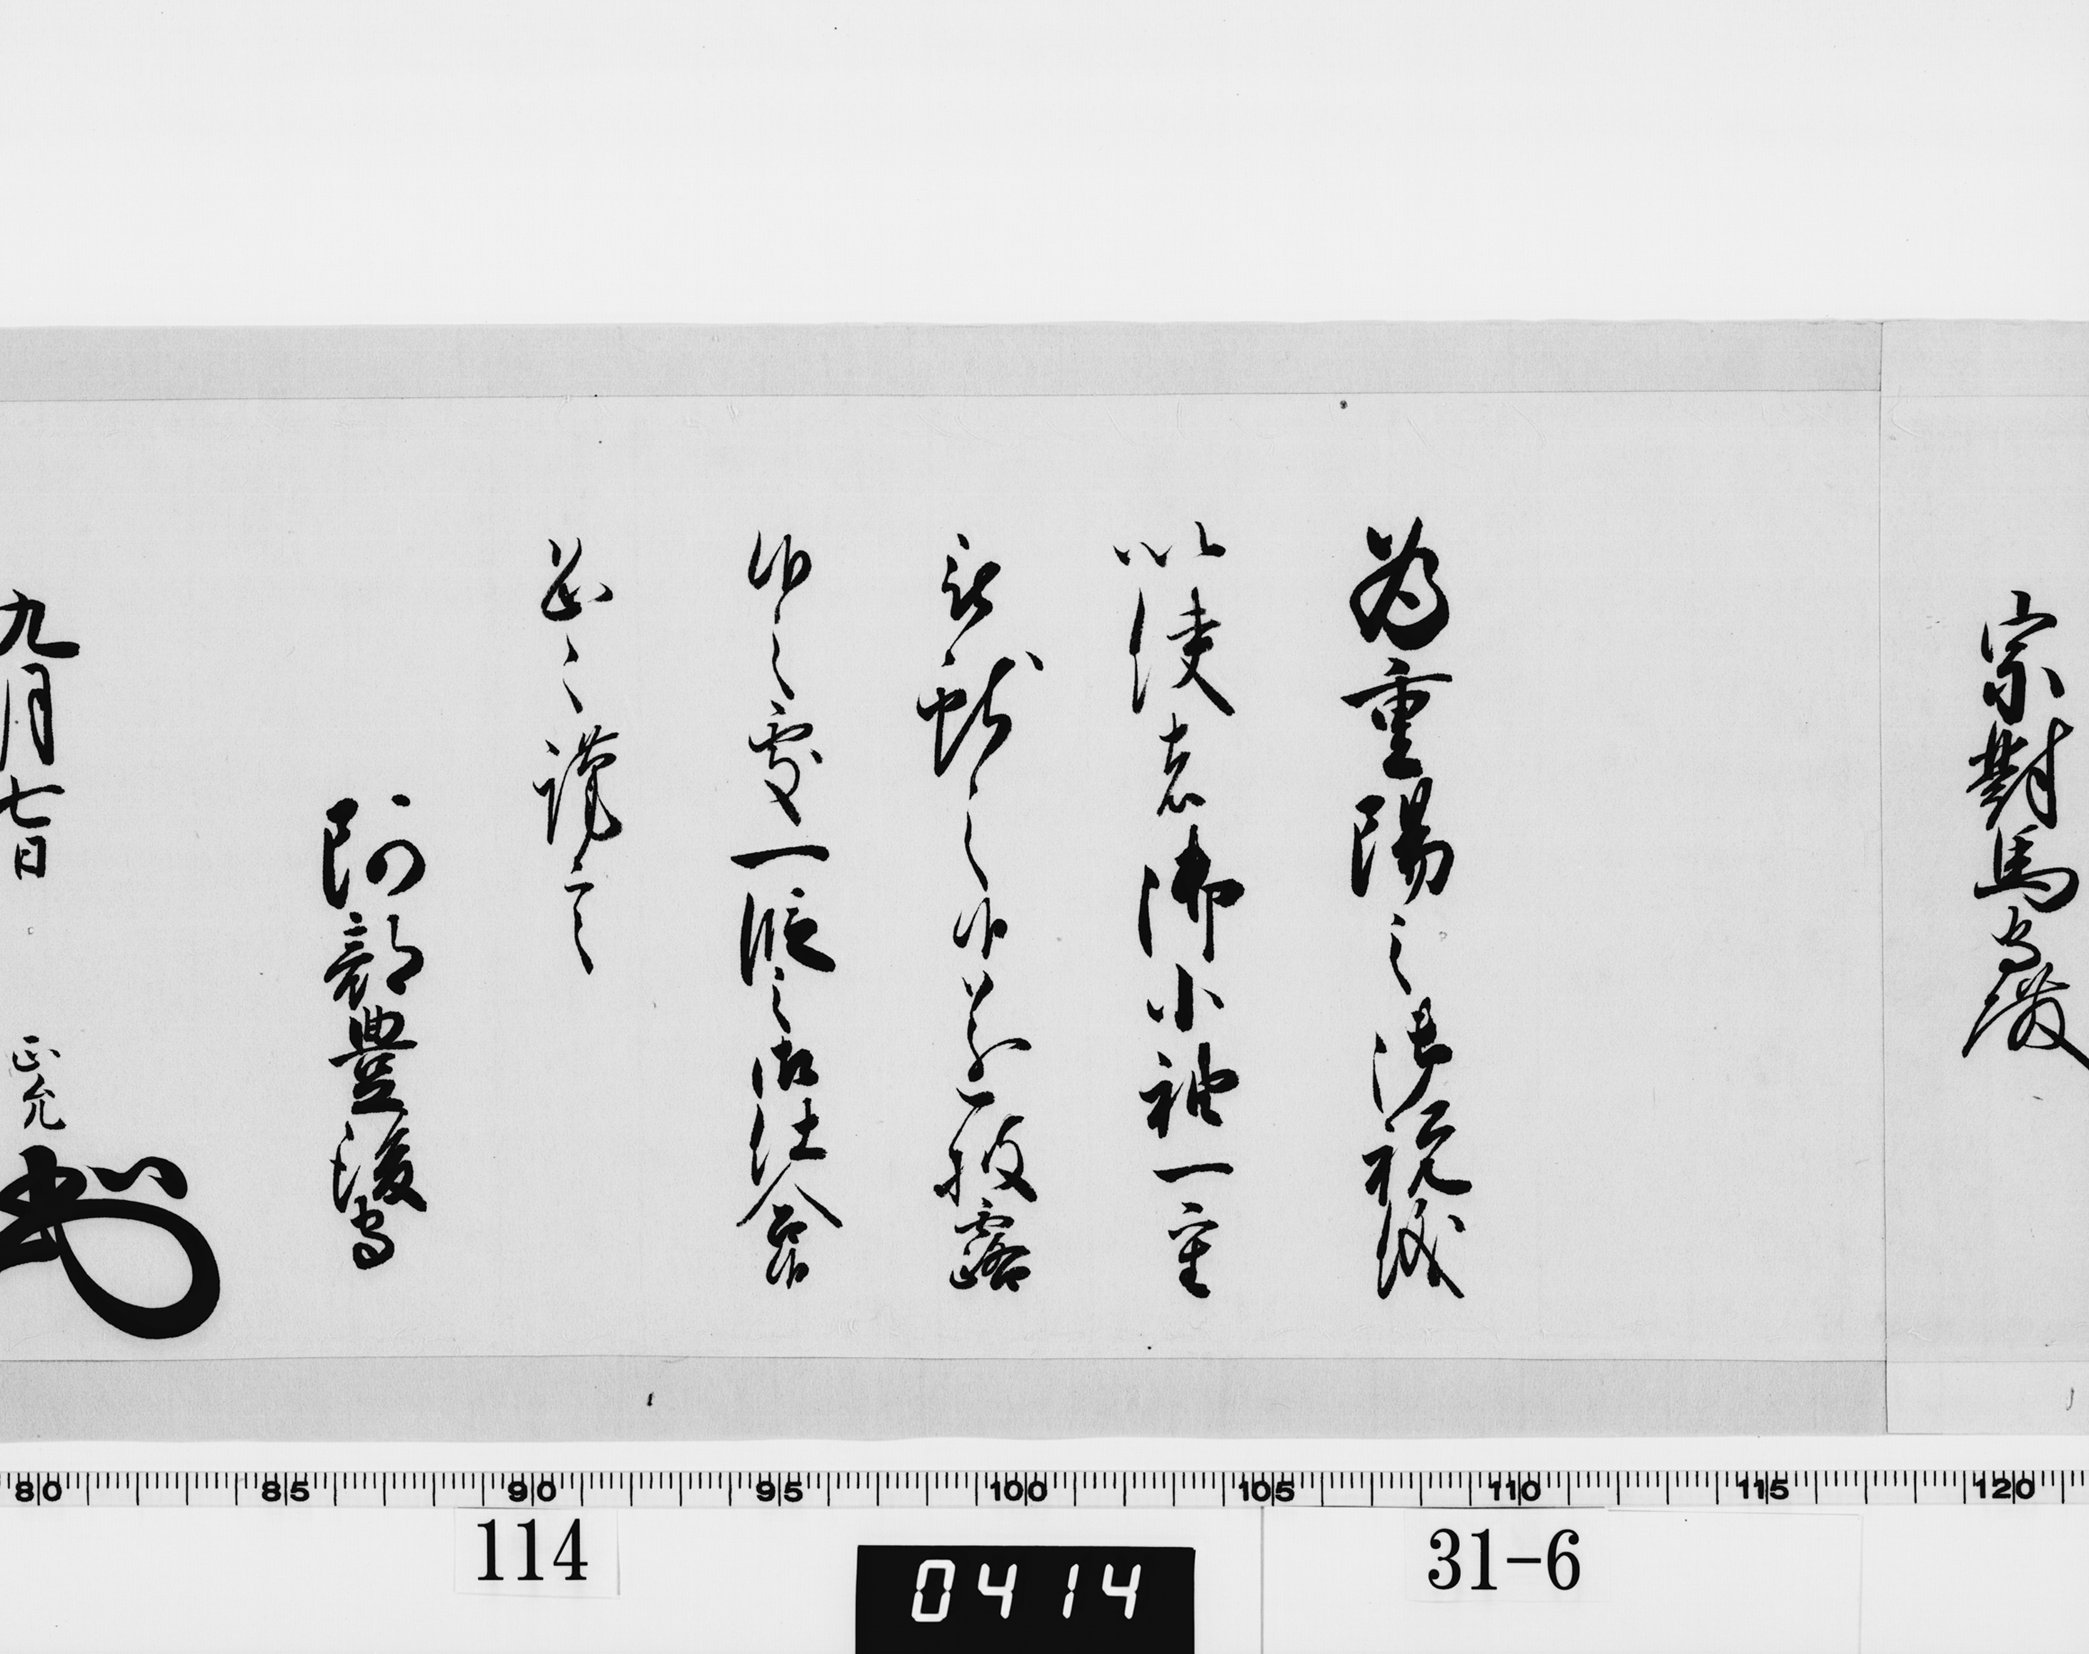 宗對馬守殿
為重陽之御祝儀
以使者御小袖一重
被獻之候披露
候之處一段之御仕合候
恐々謹言
阿部豊後守
九月七日 正允
80 85 90 95 100 105 110 115 120
114
0414
31-6